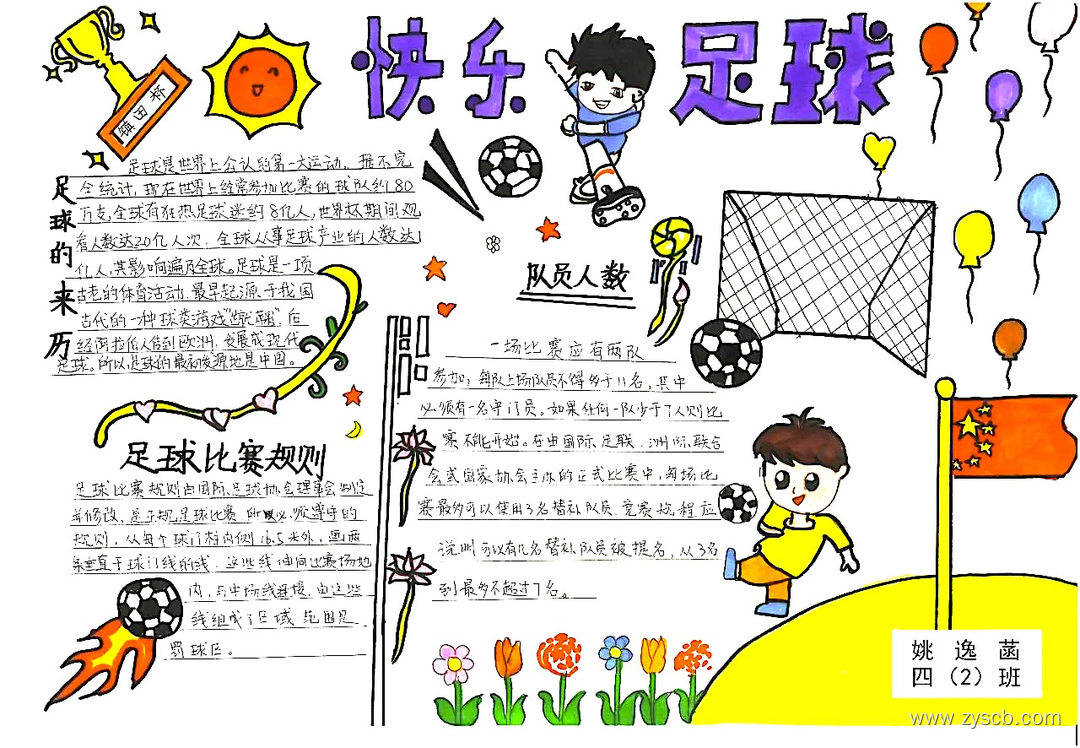 快乐足球
镇田杯
足球的来历
足球是世界上公认的第一大运动,据不完
全统计,现在世界上经常参加比赛的球队约80
万支,全球有狂热足球迷约8亿人,世界杯期间观
看人数达20亿人次,全球从事足球产业的人数达1
亿人,其影响遍及全球。足球是一项
古老的体育活动,最早起源于我国
古代的一种球类游戏"蹴鞠",后
经阿拉伯人传到欧洲,发展成现代
足球。所以,足球的最初发源地是中国。
足球比赛规则
足球比赛规则由国际足球协会理事会制定
并修改,是正规足球比赛所必须遵守的
规则,从每个球门柱内侧16.5米外,画两
条垂直于球门线的线,这些线伸向比赛场地
内,与中场线连接,由这些
线组成了区域范围是
罚球区。
队员人数
一场比赛应有两队
参加,每队上场队员不得多于11名,其中
必须有一名守门员。如果任何一队少于7人则比
赛不能开始。在由国际足联、洲际联合
会或国家协会主办的正式比赛中,每场比
赛最多可以使用3名替补队员,竞赛规程应
说明可以有几名替补队员被提名,从3名
到最多不超过7名。
姚逸菡
四(2)班
www.zyscb.com